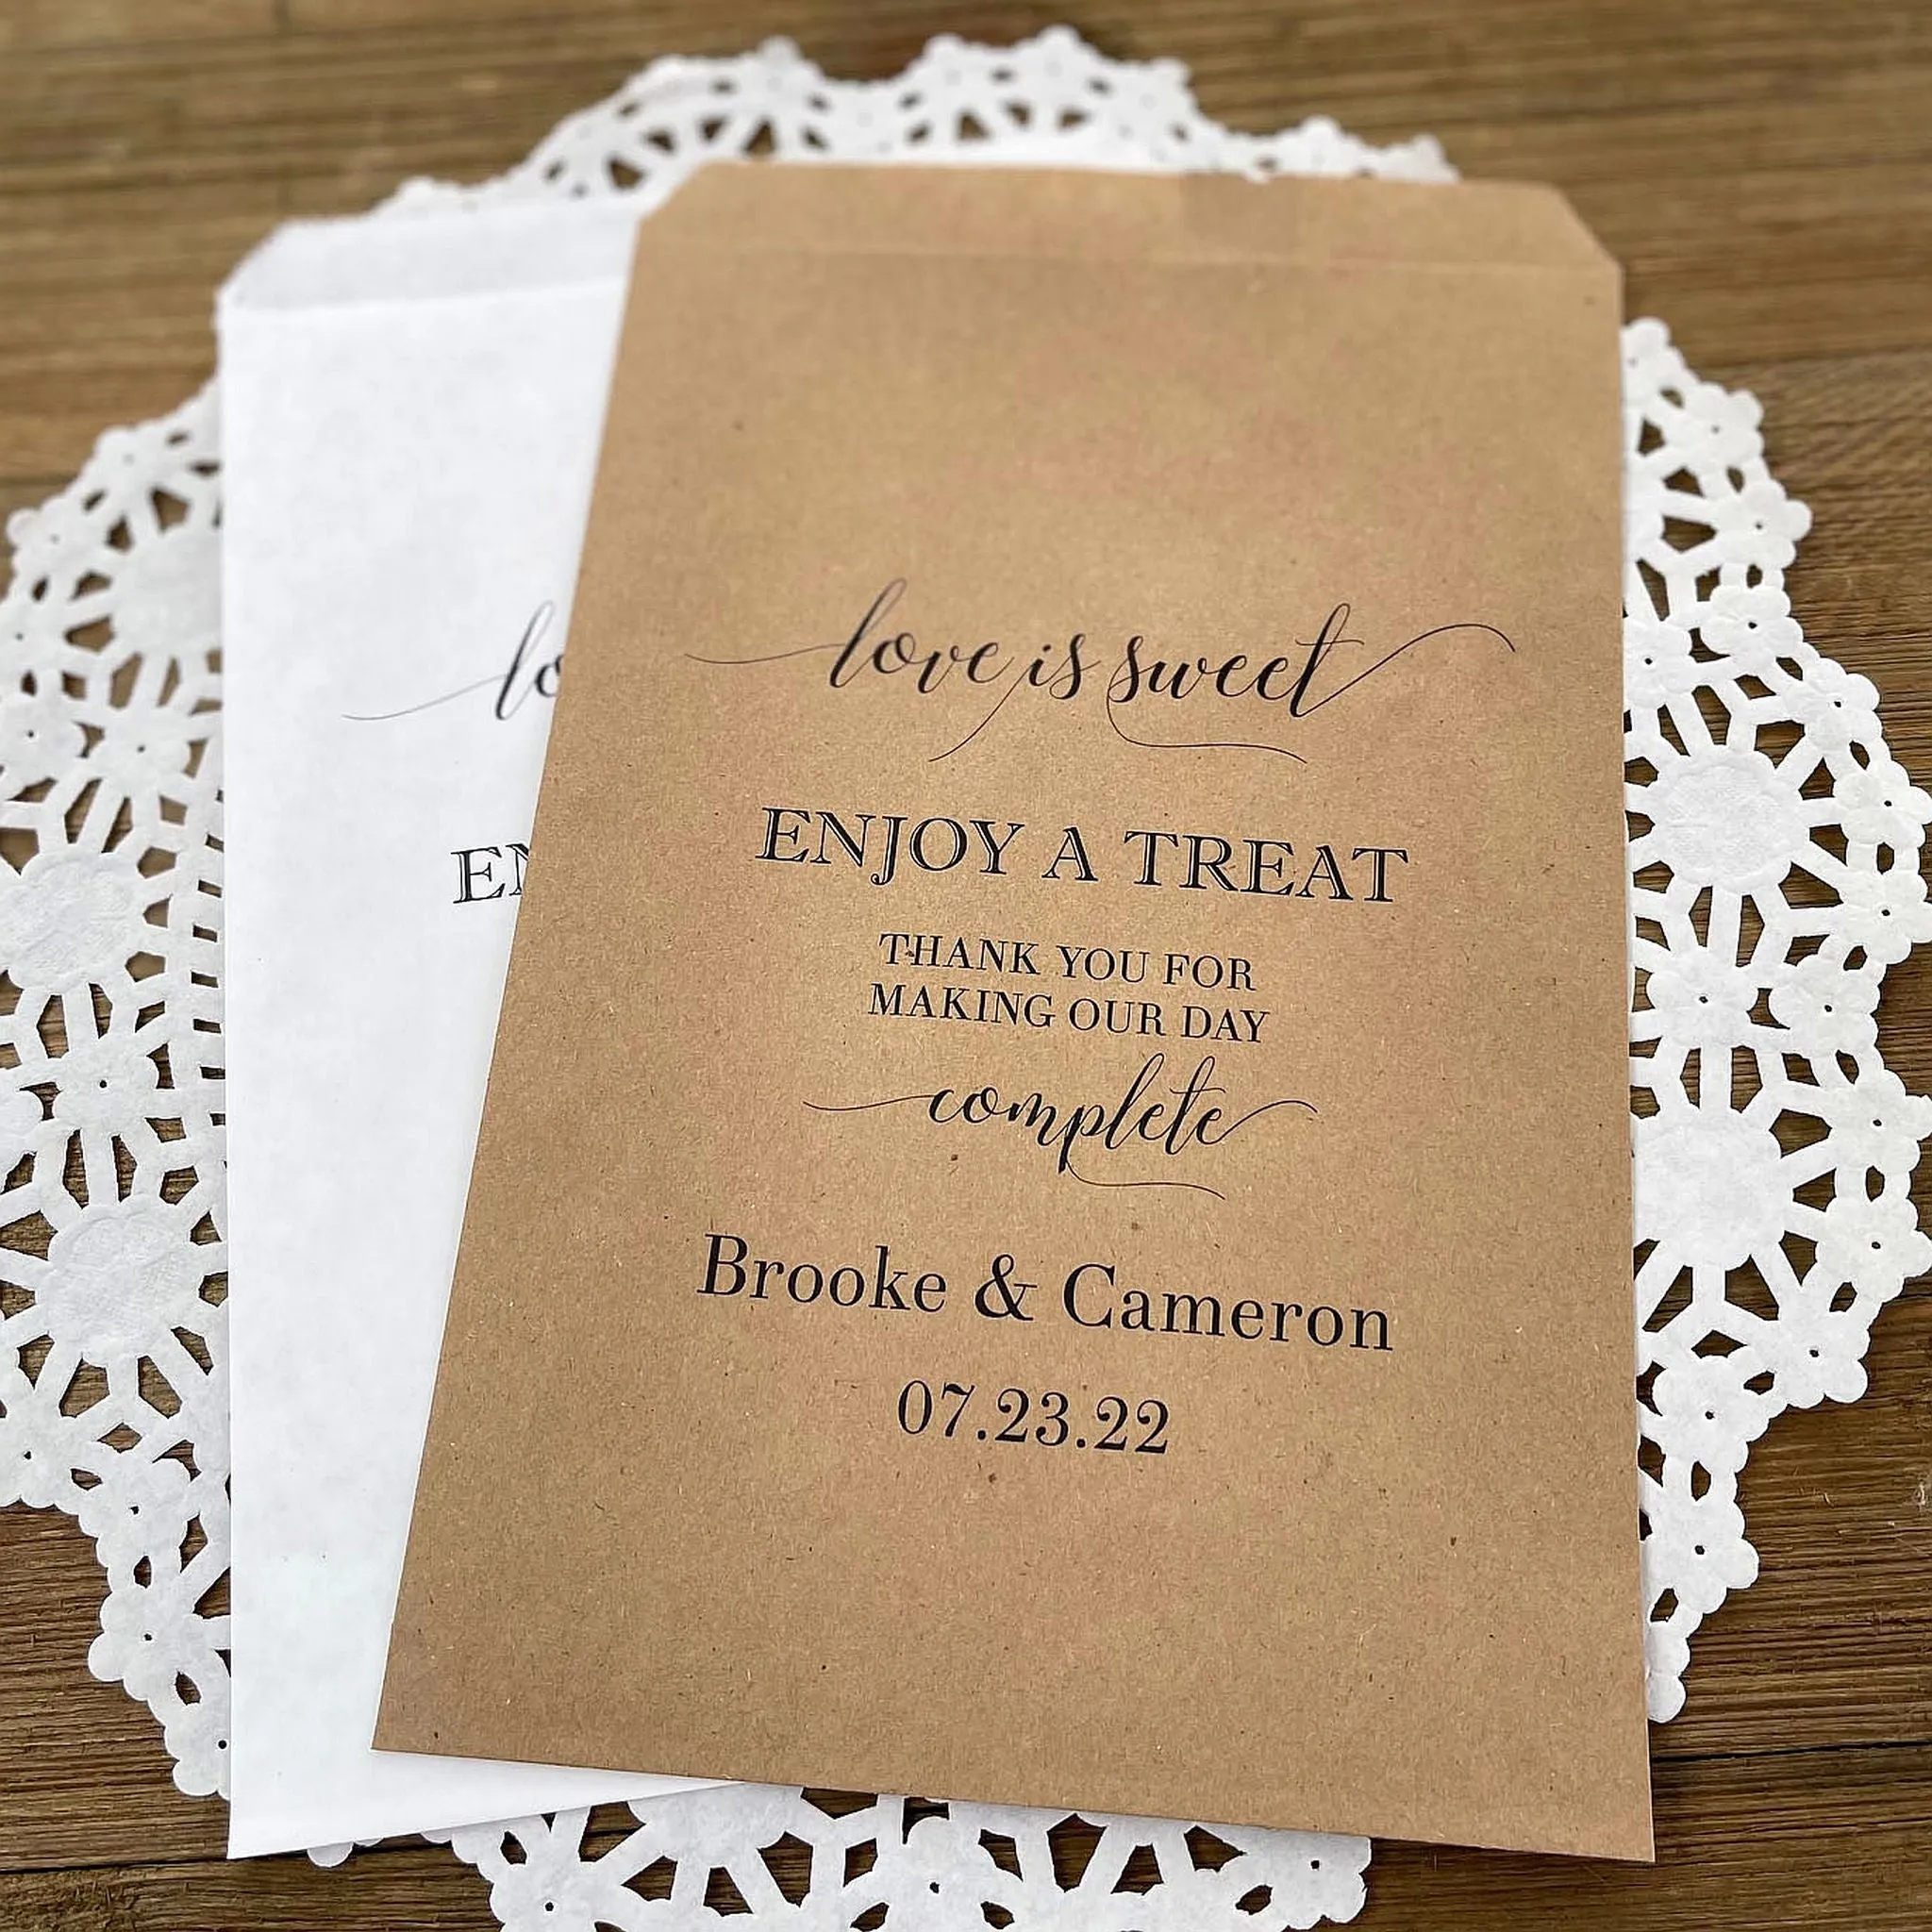 love is sweet
ENJOY A TREAT
THANK YOU FOR
MAKING OUR DAY
complete
Brooke & Cameron
07.23.22
lo
EN